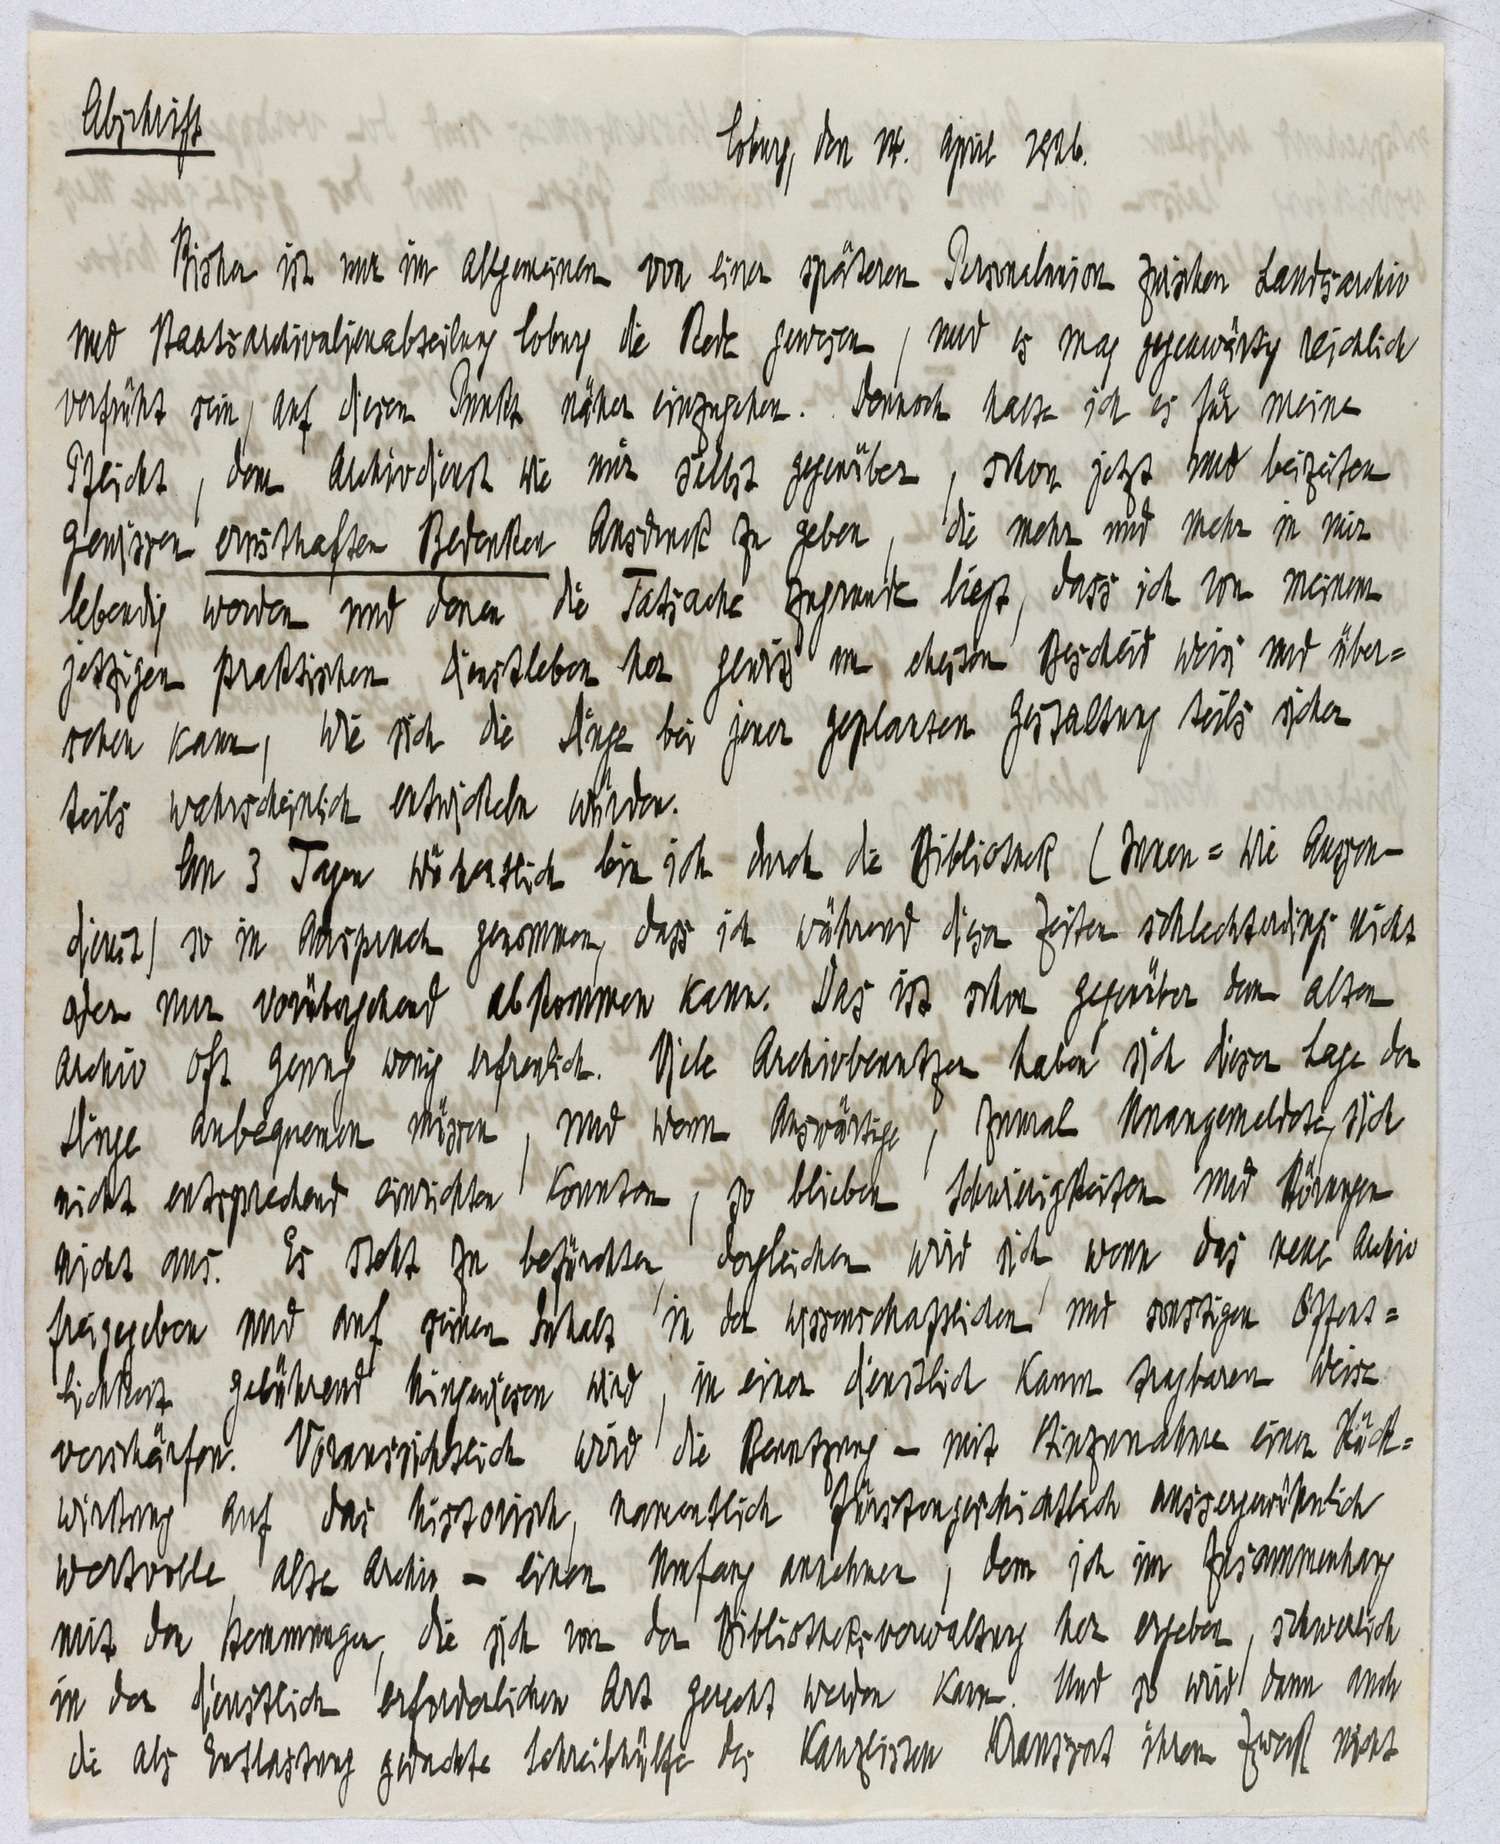 Abschrift
Coburg, den 14. April 1926.
Bisher ist nur im allgemeinen von einer späteren Personalunion zwischen Landesarchiv
und Staatsarchivalienabteilung Coburg die Rede gewesen, und es mag gegenwärtig reichlich
verfrüht sein, auf diesen Punkt näher einzugehen. Dennoch halte ich es für meine
Pflicht, dem Archivdienst wie mir selbst gegenüber, schon jetzt und beizeiten
gewissen ernsthaften Bedenken Ausdruck zu geben, die mehr und mehr in mir
lebendig werden und denen die Tatsache zugrunde liegt, dass ich von meinem
jetzigen praktischen Dienstleben her gewiss am ehesten Bescheid weiss und über=
sehen kann, wie sich die Dinge bei jener geplanten Gestaltung teils sicher
teils wahrscheinlich entwickeln würden.
An 3 Tagen wöchentlich bin ich durch die Bibliothek (Innen= wie Aussen-
dienst) so in Anspruch genommen, dass ich während dieser Zeiten schlechterdings nicht
oder nur vorübergehend abkommen kann. Das ist schon gegenüber dem alten
Archiv oft genug wenig erfreulich. Viele Archivbenutzer haben sich dieser Lage der
Dinge anbequemen müssen, und wenn Auswärtige, zumal Unangemeldete, sich
nicht entsprechend einrichten konnten, so blieben Schwierigkeiten und Störungen
nicht aus. Es steht zu befürchten, dergleichen wird sich, wenn das neue Archiv
freigegeben und auf seinen Inhalt in der wissenschaftlichen und sonstigen Öffent=
lichkeit gebührend hingewiesen wird, in einer dienstlich kaum tragbaren Weise
verschärfen. Voraussichtlich wird die Benutzung - mit Hinzunahme einer Rück=
wirkung auf das historisch, namentlich fürstengeschichtlich aussergewöhnlich
wertvolle alte Archiv - einen Umfang annehmen, dem ich im Zusammenhang
mit den Hemmungen, die sich von der Bibliotheksverwaltung her ergeben, schwerlich
in der dienstlich erforderlichen Art gerecht werden kann. Und so wird denn auch
die als Entlastung gedachte Schreibhülfe des Kanzlisten ihren Zweck nicht